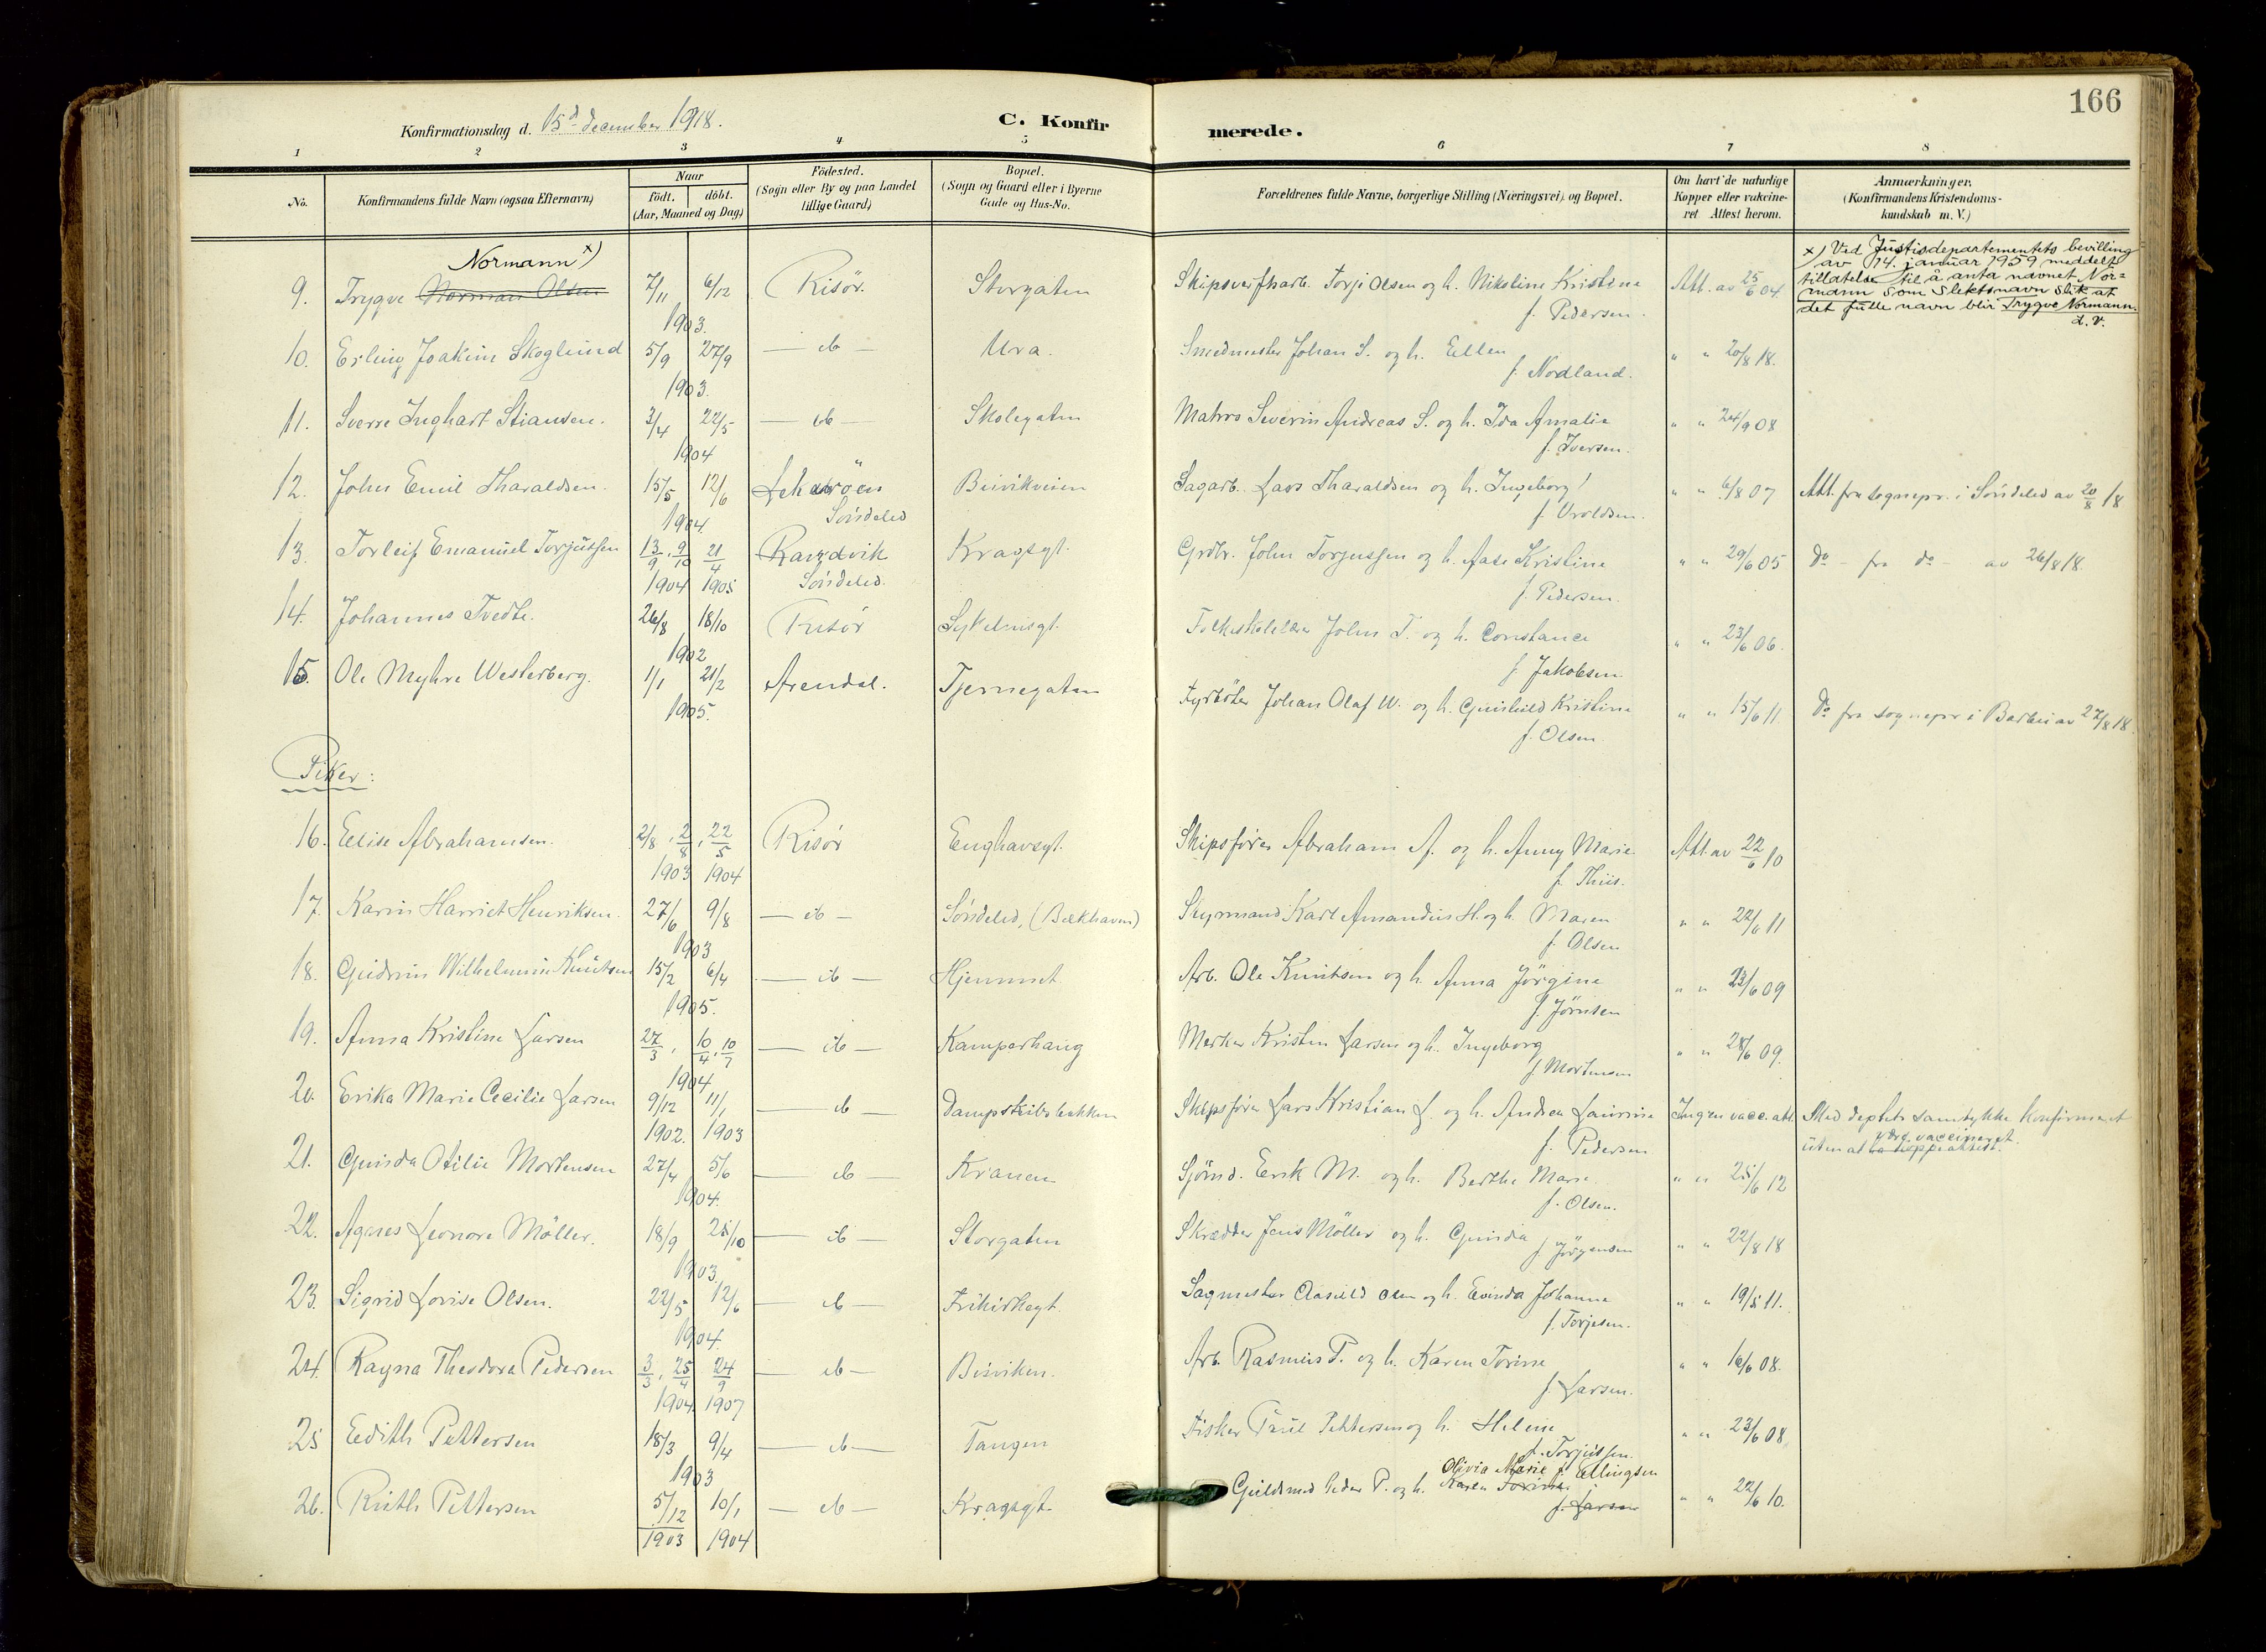 166
Konfirmationsdag d. 15d december 1918.
C. Konfirmerede.
1 2 3 4 5 6 7 8
No.
Konfirmandens fulde Navn (ogsaa Efternavn)
Naar
födt. döbt.
(Aar, Maaned og Dag)
Födested.
(Sogn eller By og paa Landet
tillige Gaard)
Bopæl.
(Sogn og Gaard eller i Byerne
Gade og Hus-No.
Forældrenes fulde Navne, borgerlige Stilling (Næringsvei) og Bopæl.
Om havt de naturlige
Kopper eller vakcine-
ret Attest herom.
Anmærkninger.
(Konfirmandens Kristendoms-
kundskab m. V.)
Normann x)
9. Trygve Norman Olsen 7/11 6/12 Risör. Storgaten Skipsverftsarb. Torje Olsen og h. Nikoline Kristine Att. av 25/6 04.
1903. f. Pedersen.
x) Ved Justisdepartementets bevilling
av 14. januar 1959 meddelt
tillatelse til å anta navnet Nor=
mann som slektsnavn slik at
det fulle navn blir Trygve Normann.
d. v.
10. Erling Joakim Skoglund 5/9 27/9 — ib — Ura. Smedmester Johan S. og h. Ellen " " 20/8 18.
1903. f. Nordland.
11. Sverre Inghart Stiansen. 3/4 22/5 — ib — Skolegaten Matros Severin Andreas S. og h. Ida Amalie " " 24/9 08
1904 f. Iversen.
12. John Emil Tharaldsen. 15/5 12/6 Buvikveien Sagarb. Lars Tharaldsen og h. Ingeborg " " 6/8 07 Att. fra sognepr. i Söndeled av 20/8 18
1904 Söndeled f. Uroldsen.
13. Torleif Emanuel Torjussen 13/9, 9/10 21/4 Randvik Kragsgt. Grdbr. John Torjussen og h. Aase Kristine " " 29/6 05 do – fra do – av 26/8 18.
1904 1905 Söndeled. f. Pedersen.
14. Johannes Tvedte. 26/8 18/10 Risör Sykehusgt. Folkeskolelærer John T. og h. Constance " " 23/6 06.
1902 f. Jakobsen
15. Ole Myhre Westerberg. 1/1 21/2 Arendal. Tjernegaten Fyrböter Johan Olaf W. og h. Gunhild Kristine " " 15/6 11. do fra sognepr i Barbu av 27/8 18.
1905. f. Olsen
Piker:
16. Elise Abrahamsen. 2/8, 2/8, 22/5 Risör Enghavsgt. Skipsförer Abraham A. og h. Anny Marie Att. av 22/6 10
1903 1904 f. Thiis.
17. Karin Harriet Henriksen. 27/6 9/8 — ib — Söndeled, (Bækhaven) Styrmand Karl Amandus H. og h. Maren " " 22/6 11
1903 f. Olsen
18. Gudrun Wilhelmine Knutsen 15/2 6/4 — ib — Hjemmet Arb. Ole Knutsen og h. Anna Jörgine " " 23/6 09
1905. f. Jörnsen
19. Anna Kristine Larsen 27/3, 10/4, 10/7 — ib — Kamperhaug Merker Kristen Larsen og h. Ingeborg " " 28/6 09.
1904 f. Mortensen
20. Erika Marie Cecilie Larsen 9/12 11/1 — ib — Dampskibsbakken Skipsförer Lars Kristian L. og h. Andrea Laurine Ingen vacc. att. Med deptets samtykke konfirmeret
1902. 1903 f. Pedersen
være vaccineret.
uten at ha koppeattest.
21. Gunda Otilie Mortensen 27/4 5/6 — ib — Kranen Sjömd. Enok M. og h. Berthe Marie " " 25/6 12
1904. f. Olsen.
22. Agnes Leonore Möller. 18/9 25/10 — ib — Storgaten Skrædder Jens Möller og h. Gunda " " 22/8 18
1903. f. Jörgensen
23. Sigrid Lovise Olsen. 22/5 12/6 — ib — Frikirkegt. Sagmester Aasuld Olsen og h. Evinda Johanne " " 19/5 11.
1904. f. Torjesen.
24. Ragna Theodora Pedersen 3/3, 25/4 24/9 — ib — Buviken. Arb. Rasmus P. og h. Karen Torine " " 16/6 08.
1904. 1907 f. Larsen.
25 Edith Pettersen 18/3 9/4 — ib — Tangen Fisker Paul Pettersen og h. Helene " " 23/6 08.
1903 f. Torjussen.
Olivia Marie f. Ellingsen
26. Ruth Pettersen 5/12 10/1 — ib — Kragsgt. Guldsmed Peder P. og h. Karen Torine " " 22/6 10.
1903 1904 f. Larsen